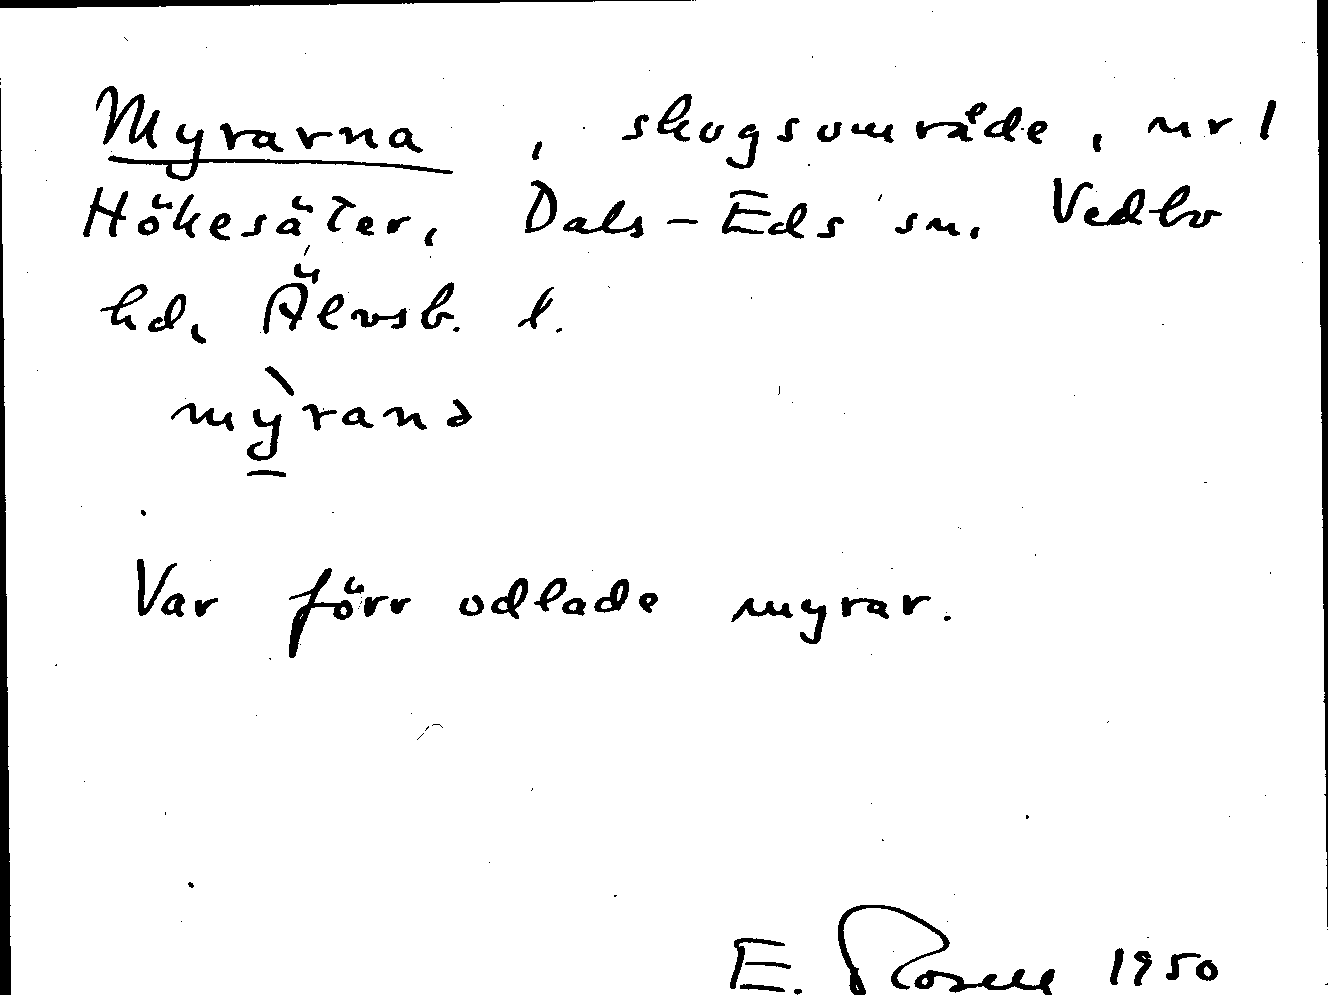 Myrarna, skogsområde, nr 1
Hökesäter, Dals-Eds sn. Vedbo
hd, Älvsb. l.
mỳ̱ranə
Var förr odlade myrar.
E. Rosell 1950